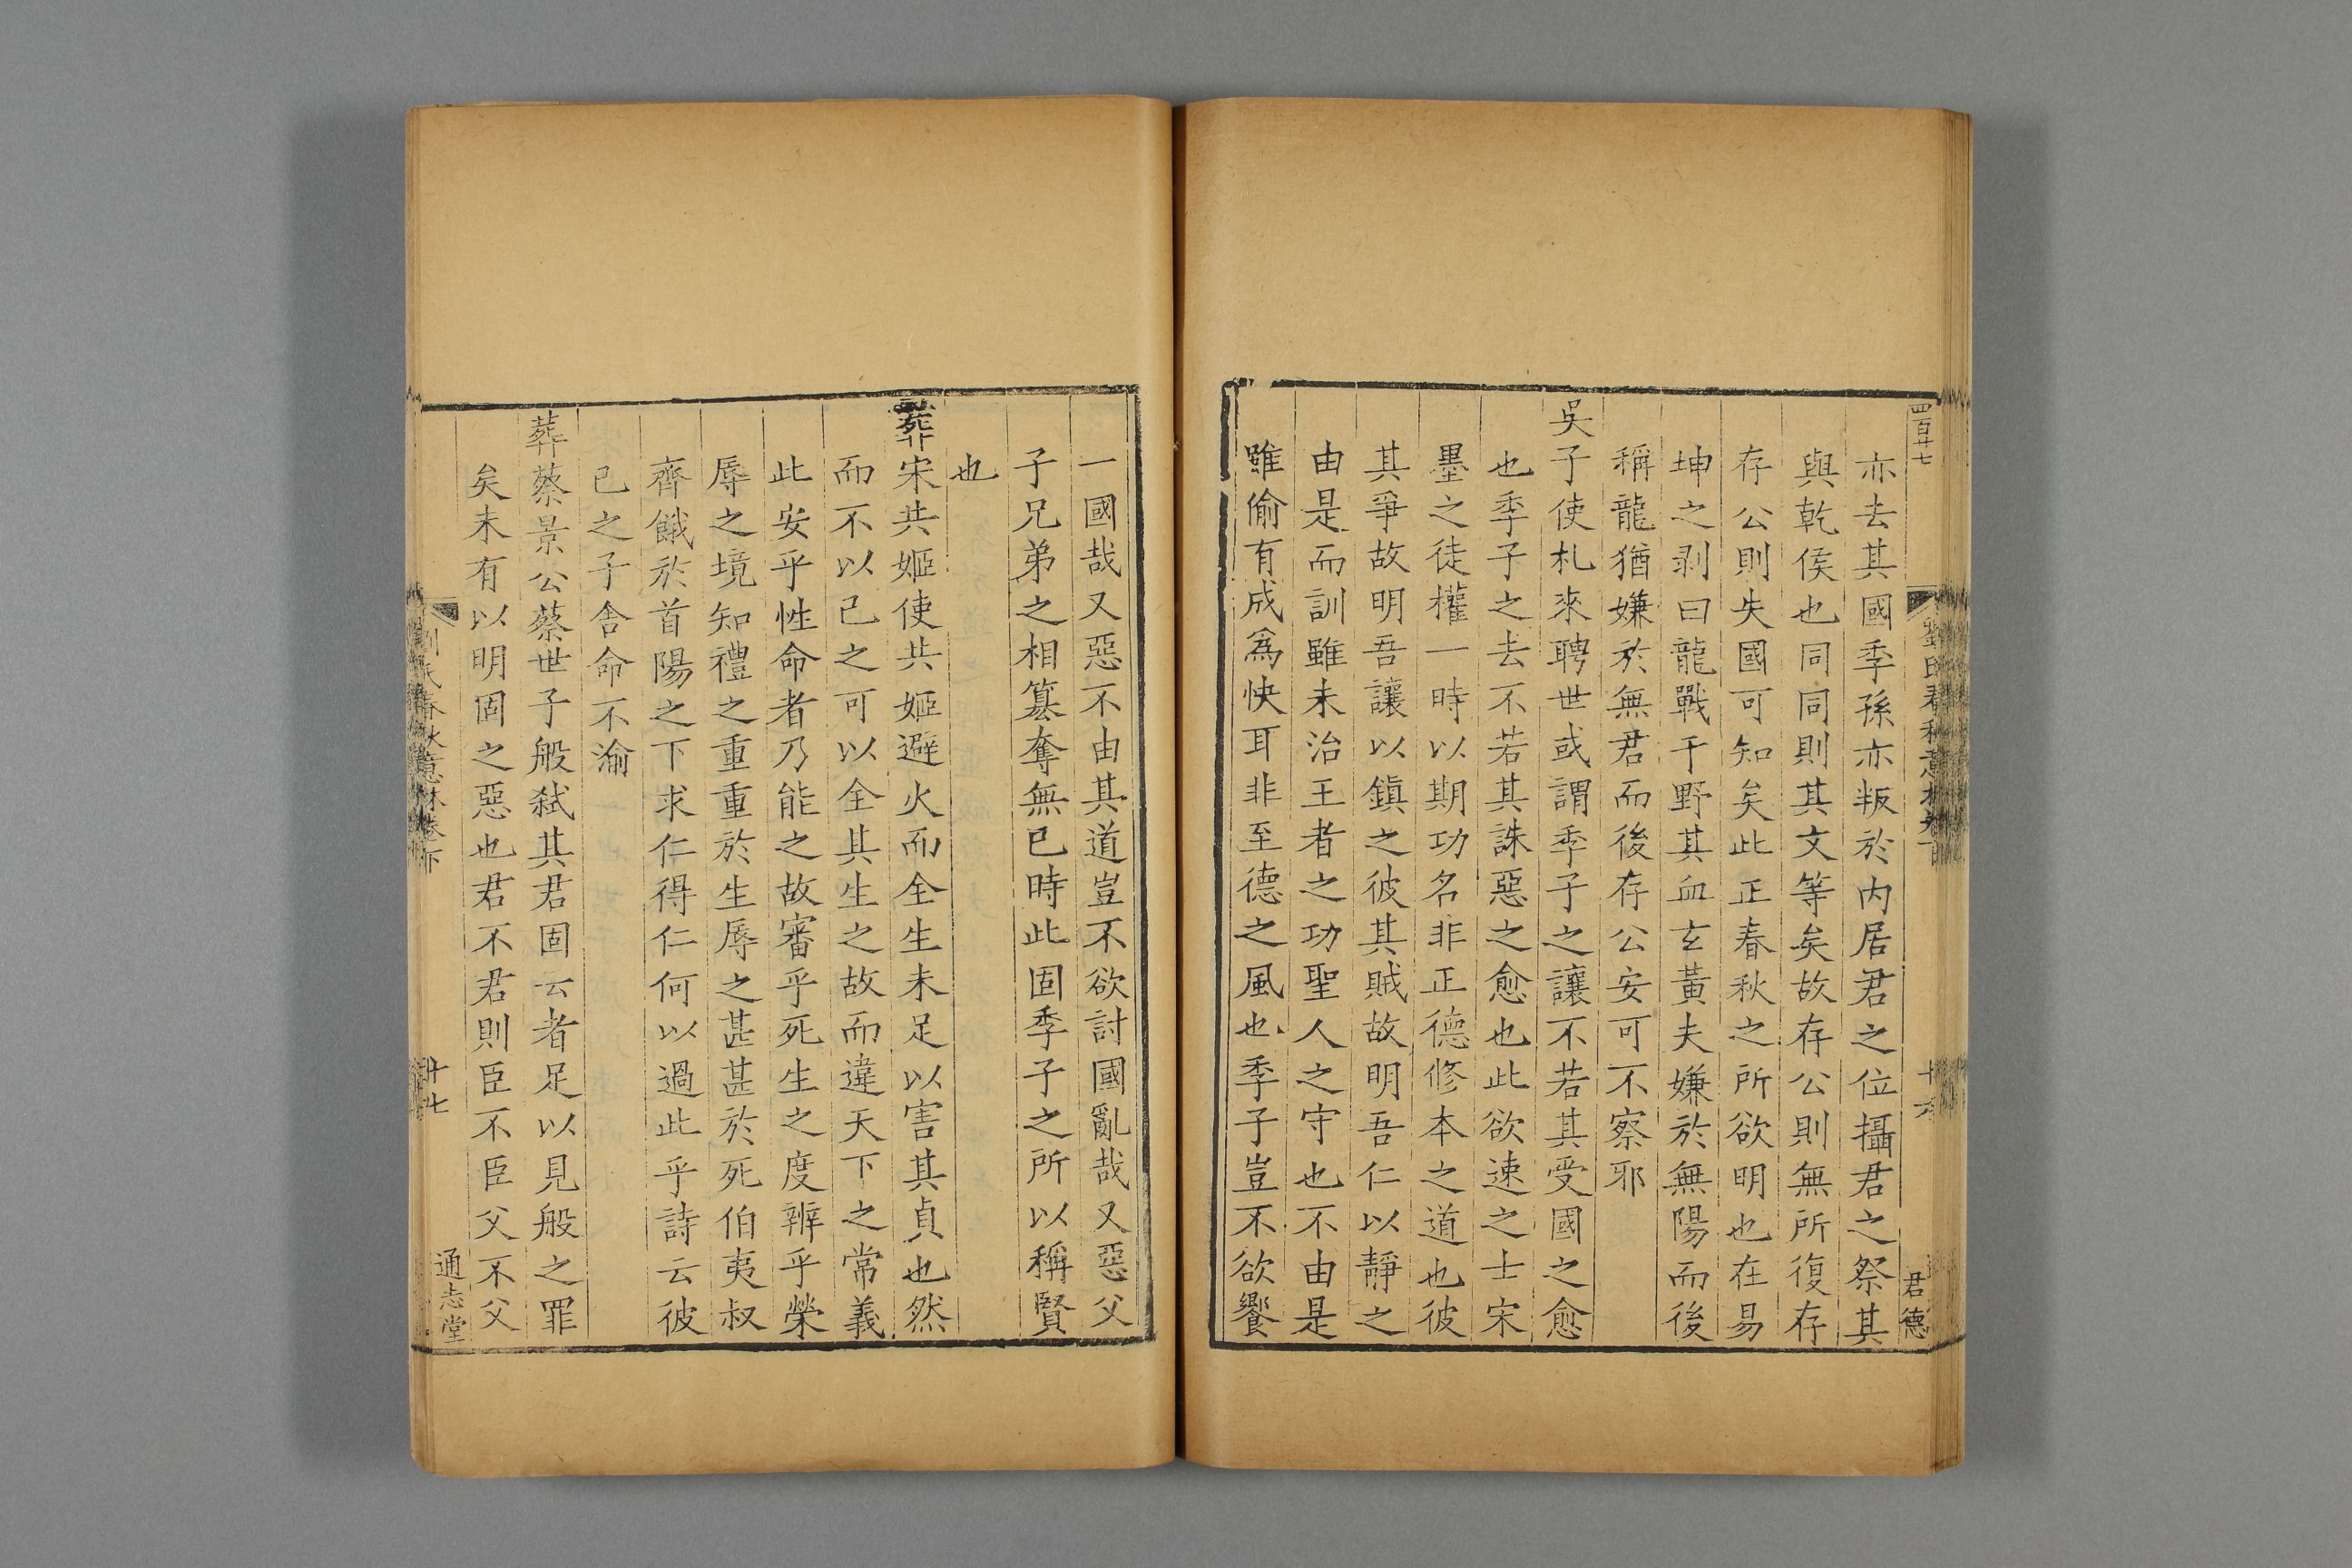 四百廿七
劉氏春秋意林卷下
十六
君德
亦去其國季孫亦叛於内居君之位攝君之祭其
與乾侯也同同則其文等矣故存公則無所復存
存公則失國可知矣此正春秋之所欲明也在易
坤之剥曰龍戰于野其血玄黃夫嫌於無陽而後
稱龍猶嫌於無君而後存公安可不察邪
吳子使札來聘世或謂季子之讓不若其受國之愈
也季子之去不若其誅惡之愈也此欲速之士宋
墨之徒權一時以期功名非正德修本之道也彼
其爭故明吾讓以鎮之彼其賊故明吾仁以靜之
由是而訓雖未治王者之功聖人之守也不由是
雖偷有成爲快耳非至德之風也季子豈不欲饗
一國哉又惡不由其道豈不欲討國亂哉又惡父
子兄弟之相簒奪無已時此固季子之所以稱賢
也
葬宋共姬使共姬避火而全生未足以害其貞也然
而不以己之可以全其生之故而違天下之常義
此安乎性命者乃能之故審乎死生之度辨乎榮
辱之境知禮之重重於生辱之甚甚於死伯夷叔
齊餓於首陽之下求仁得仁何以過此乎詩云彼
己之子舍命不渝
葬蔡景公蔡世子般弑其君固云者足以見般之罪
矣未有以明固之惡也君不君則臣不臣父不父
劉氏春秋意林卷下
十七
通志堂